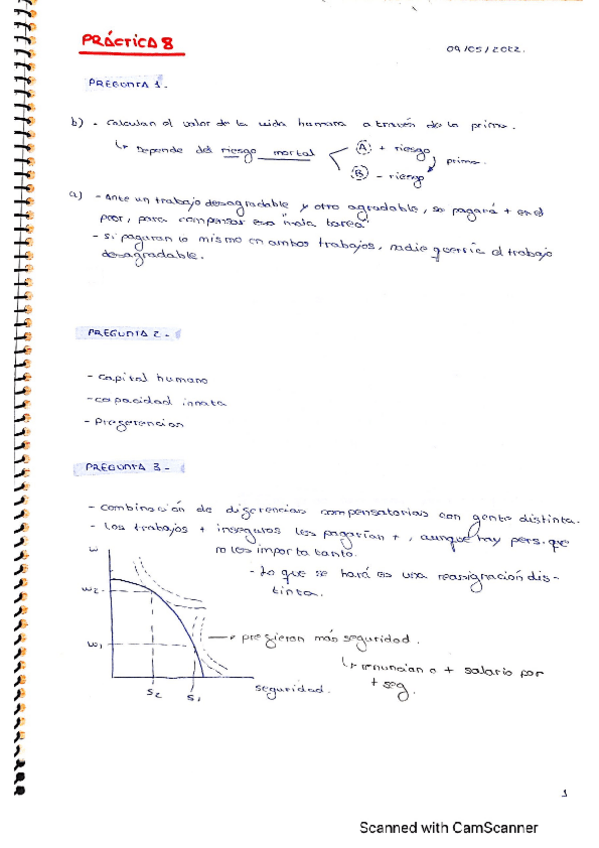 PRÁCTICA 8
09/05/2022.
PREGUNTA 1.
b) - Calculan el valor de la vida humana a través de la prima.
↳ Depende del riesgo mortal
A + riesgo
prima.
B - riesgo
a) - Ante un trabajo desagradable y otro agradable, se pagará + en el
peor, para compensar esa "mala tarea"
- Si pagaran lo mismo en ambos trabajos, nadie querría el trabajo
desagradable.
PREGUNTA 2 -
- capital humano
- capacidad innata
- Preferencias
PREGUNTA 3 -
- combinación de diferencias compensatorias con gente distinta.
- Los trabajos + inseguros les pagarían +, aunque hay pers. que
no les importa tanto.
- Lo que se hará es una reasignación dis-
tinta.
w
w2
w1
→ prefieren más seguridad.
↳ renuncian a + salario por
+ seg.
S2
S1
seguridad.
1
Scanned with CamScanner